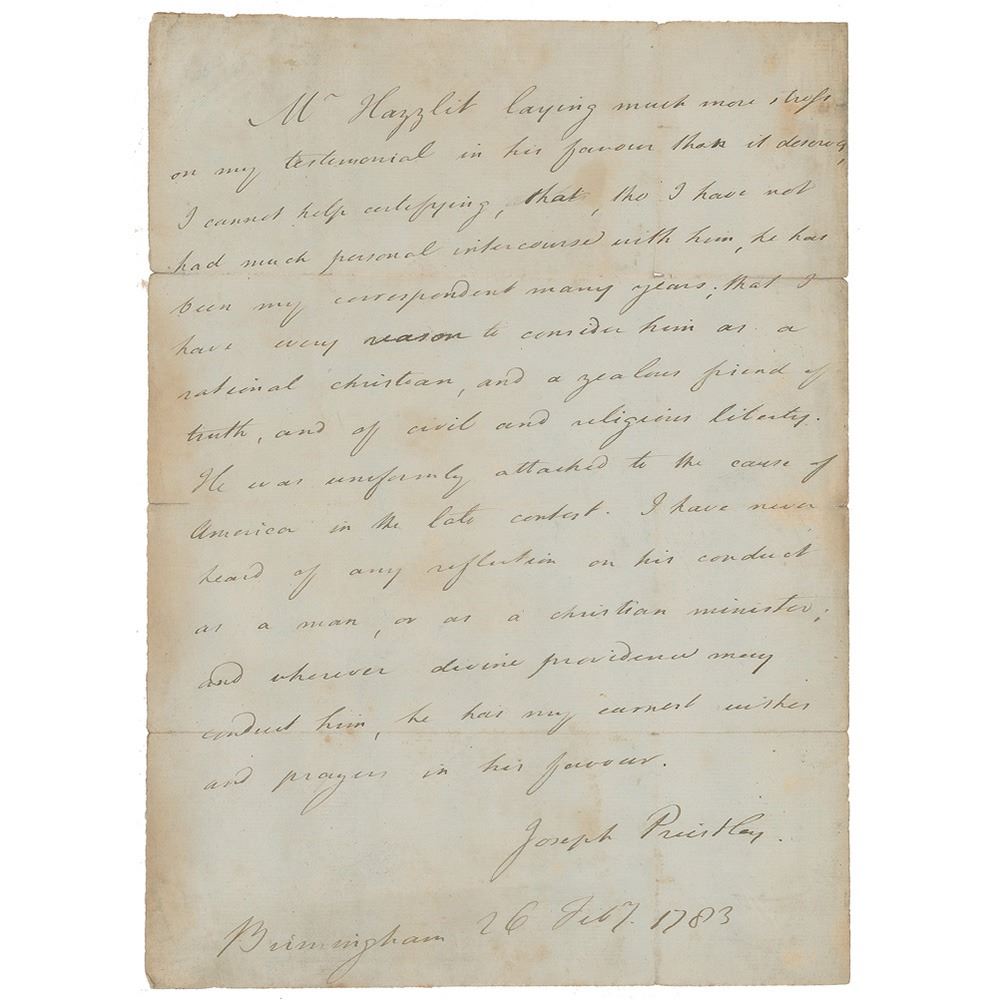 Mr Hazzlit laying much more stress
on my testimonial in his favour than it deserves,
I cannot help certifying, that, tho I have not
had much personal intercourse with him, he has
been my correspondent many years; that I
have every reason to consider him as a
rational christian, and a zealous friend of
truth, and of civil and religious liberty.
He was uniformly attached to the cause of
America in the late contest. I have never
heard of any reflection on his conduct
as a man, or as a christian minister;
and wherever divine providence may
conduct him, he has my earnest wishes
and prayers in his favour.
Joseph Priestley.
Birmingham 26 Feby. 1783